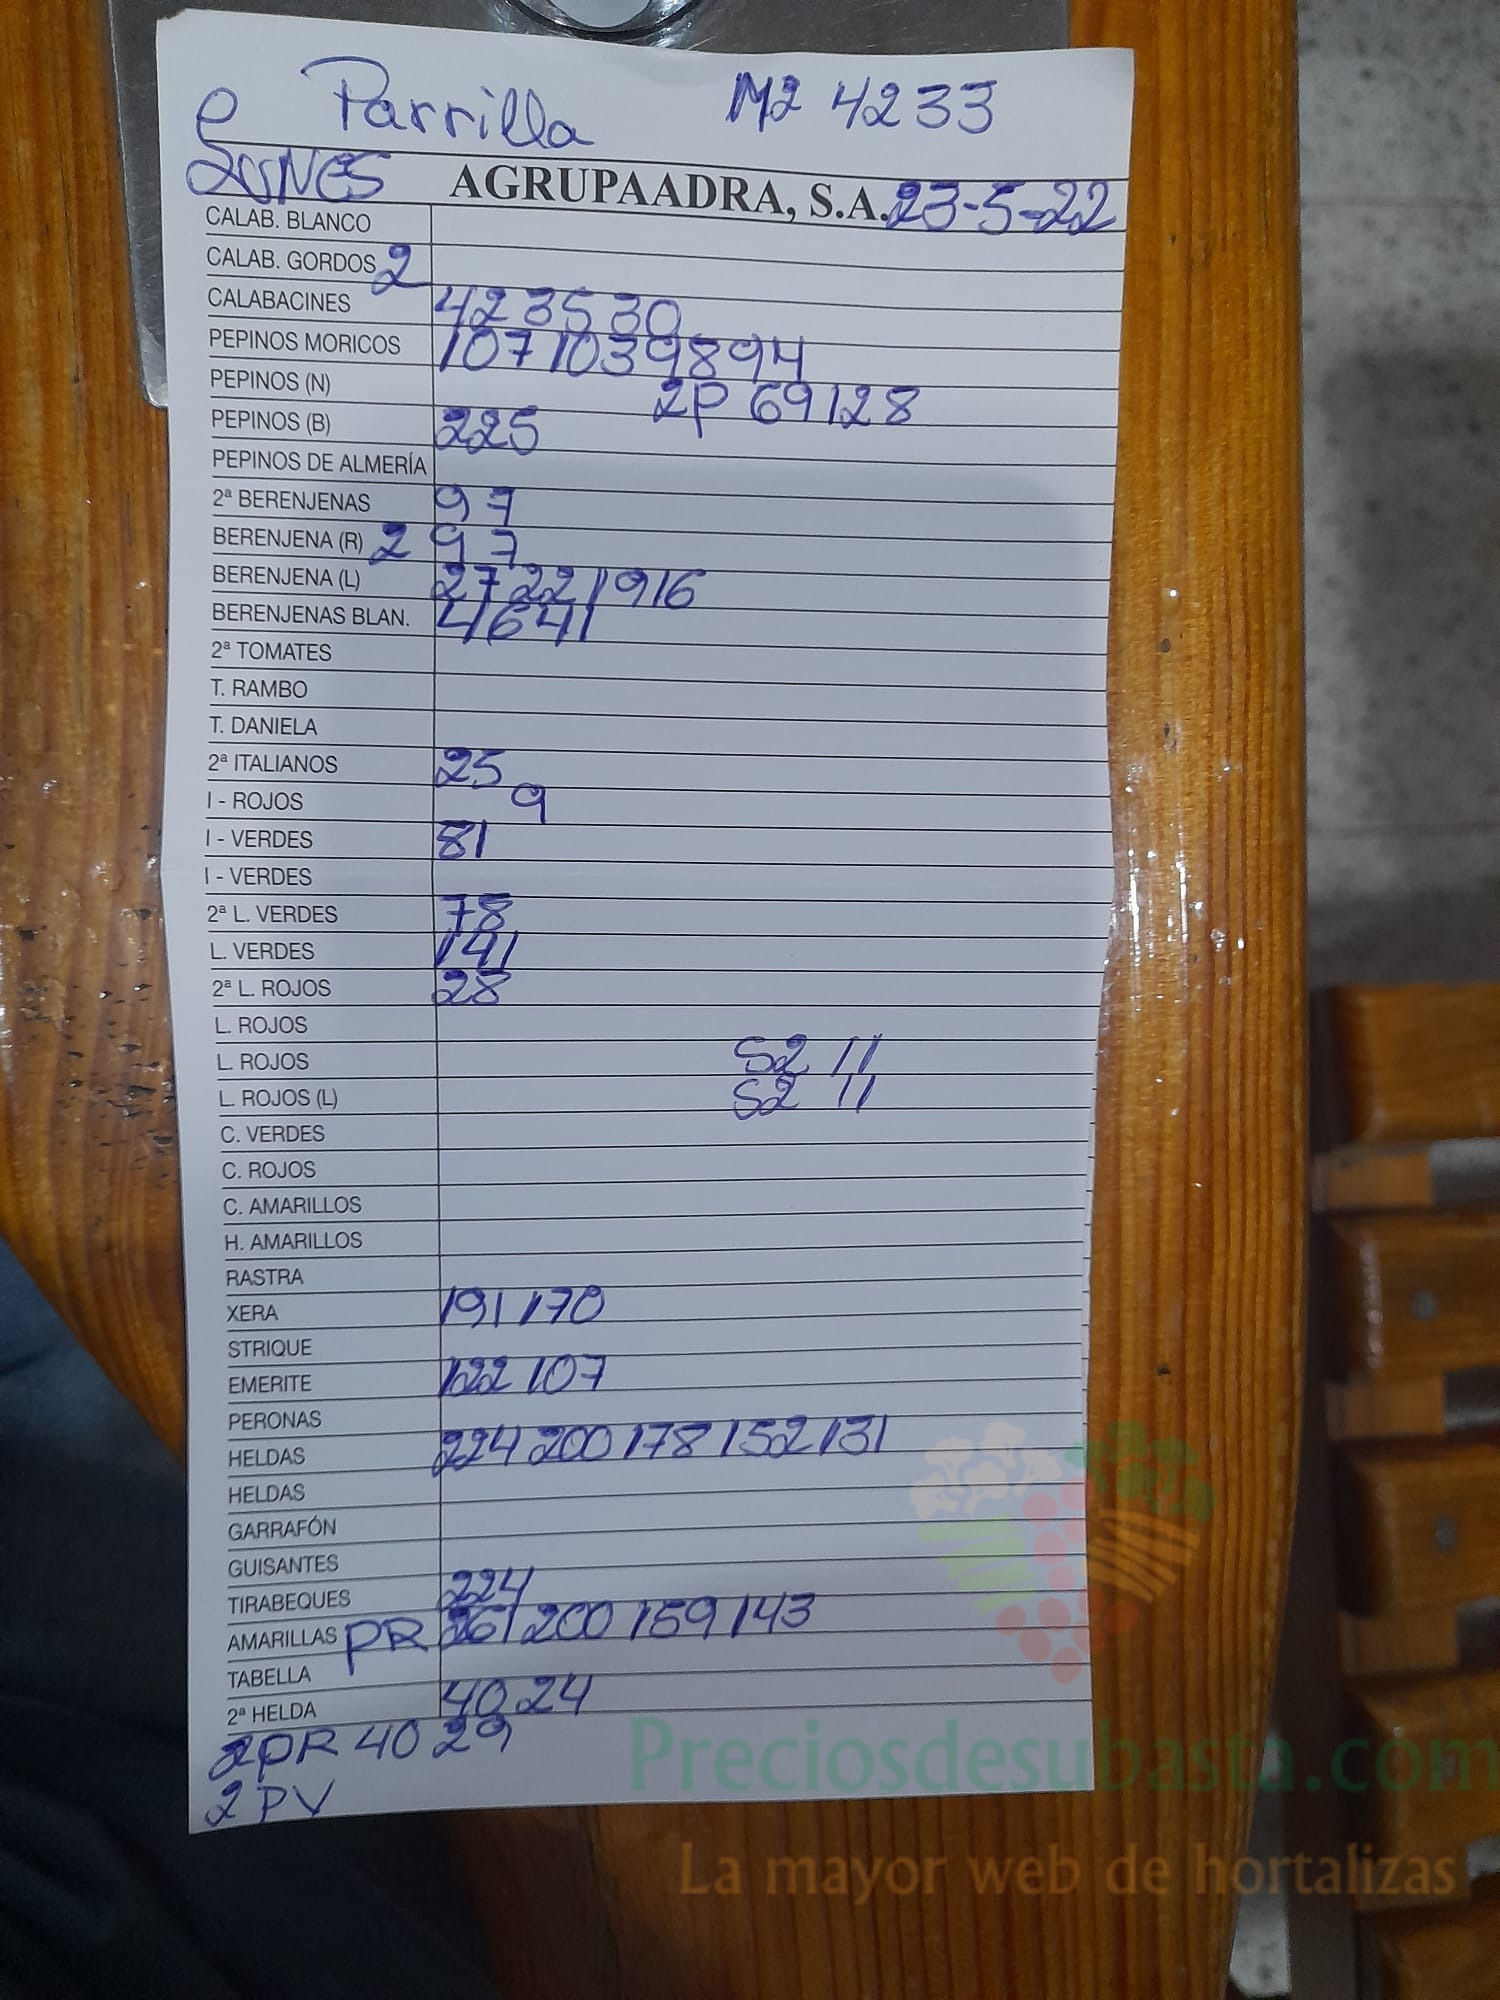 e Parrilla M2 42 33
LUNES AGRUPAADRA, S.A. 23-5-22
CALAB. BLANCO
CALAB. GORDOS 2
CALABACINES 42 35 30
PEPINOS MORICOS 107 103 98 94
PEPINOS (N) 2P 69 128
PEPINOS (B) 225
PEPINOS DE ALMERÍA
2ª BERENJENAS 9 7
BERENJENA (R) 2 9 7
BERENJENA (L) 27 22 19 16
BERENJENAS BLAN. 46 41
2ª TOMATES
T. RAMBO
T. DANIELA
2ª ITALIANOS 25
I - ROJOS 9
I - VERDES 81
I - VERDES
2ª L. VERDES 78
L. VERDES 141
2ª L. ROJOS 28
L. ROJOS
L. ROJOS S2 11
L. ROJOS (L) S2 11
C. VERDES
C. ROJOS
C. AMARILLOS
H. AMARILLOS
RASTRA
XERA 191 170
STRIQUE
EMERITE 122 107
PERONAS
HELDAS 224 200 178 152 131
HELDAS
GARRAFÓN
GUISANTES
TIRABEQUES 224
AMARILLAS PR 261 200 159 143
TABELLA
2ª HELDA 40 24
2PR 40 29
2 PV
Preciosdesubasta.com
La mayor web de hortalizas